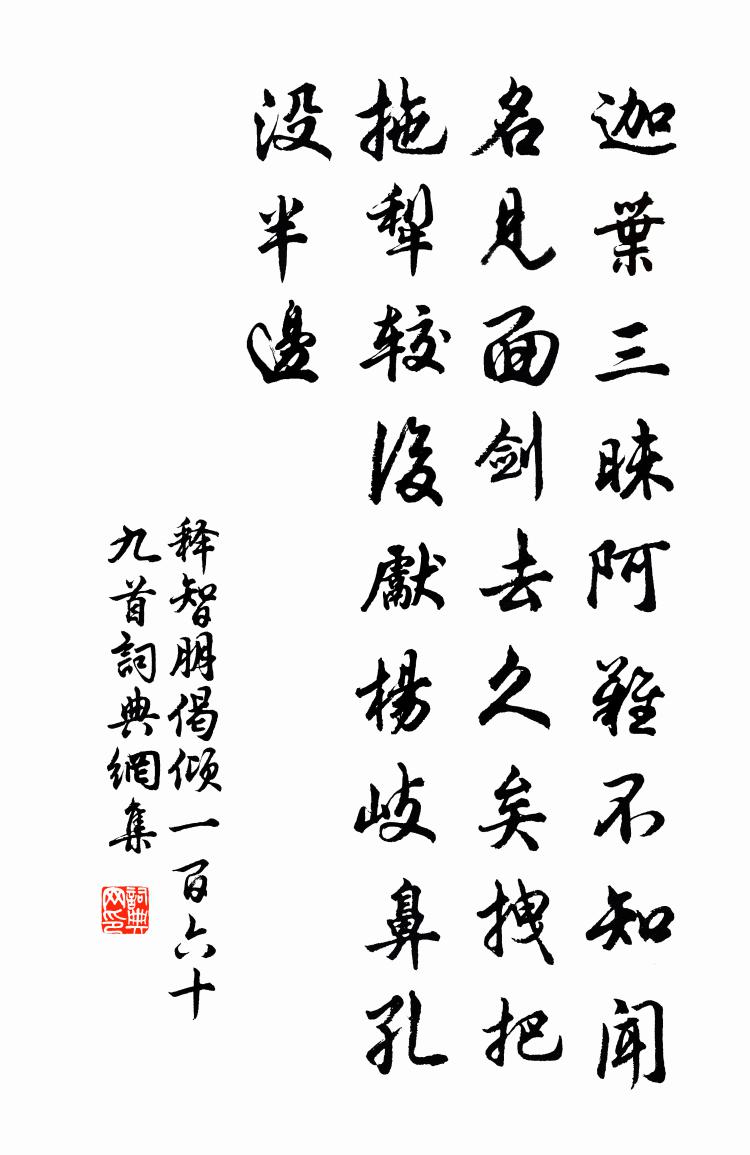 迦葉三昧阿難不知聞
名見面劍去久矣拽把
拖犁较後獻楊岐鼻孔
没半邊
释智朋偈倾一百六十
九首詞典網集
詞典网印